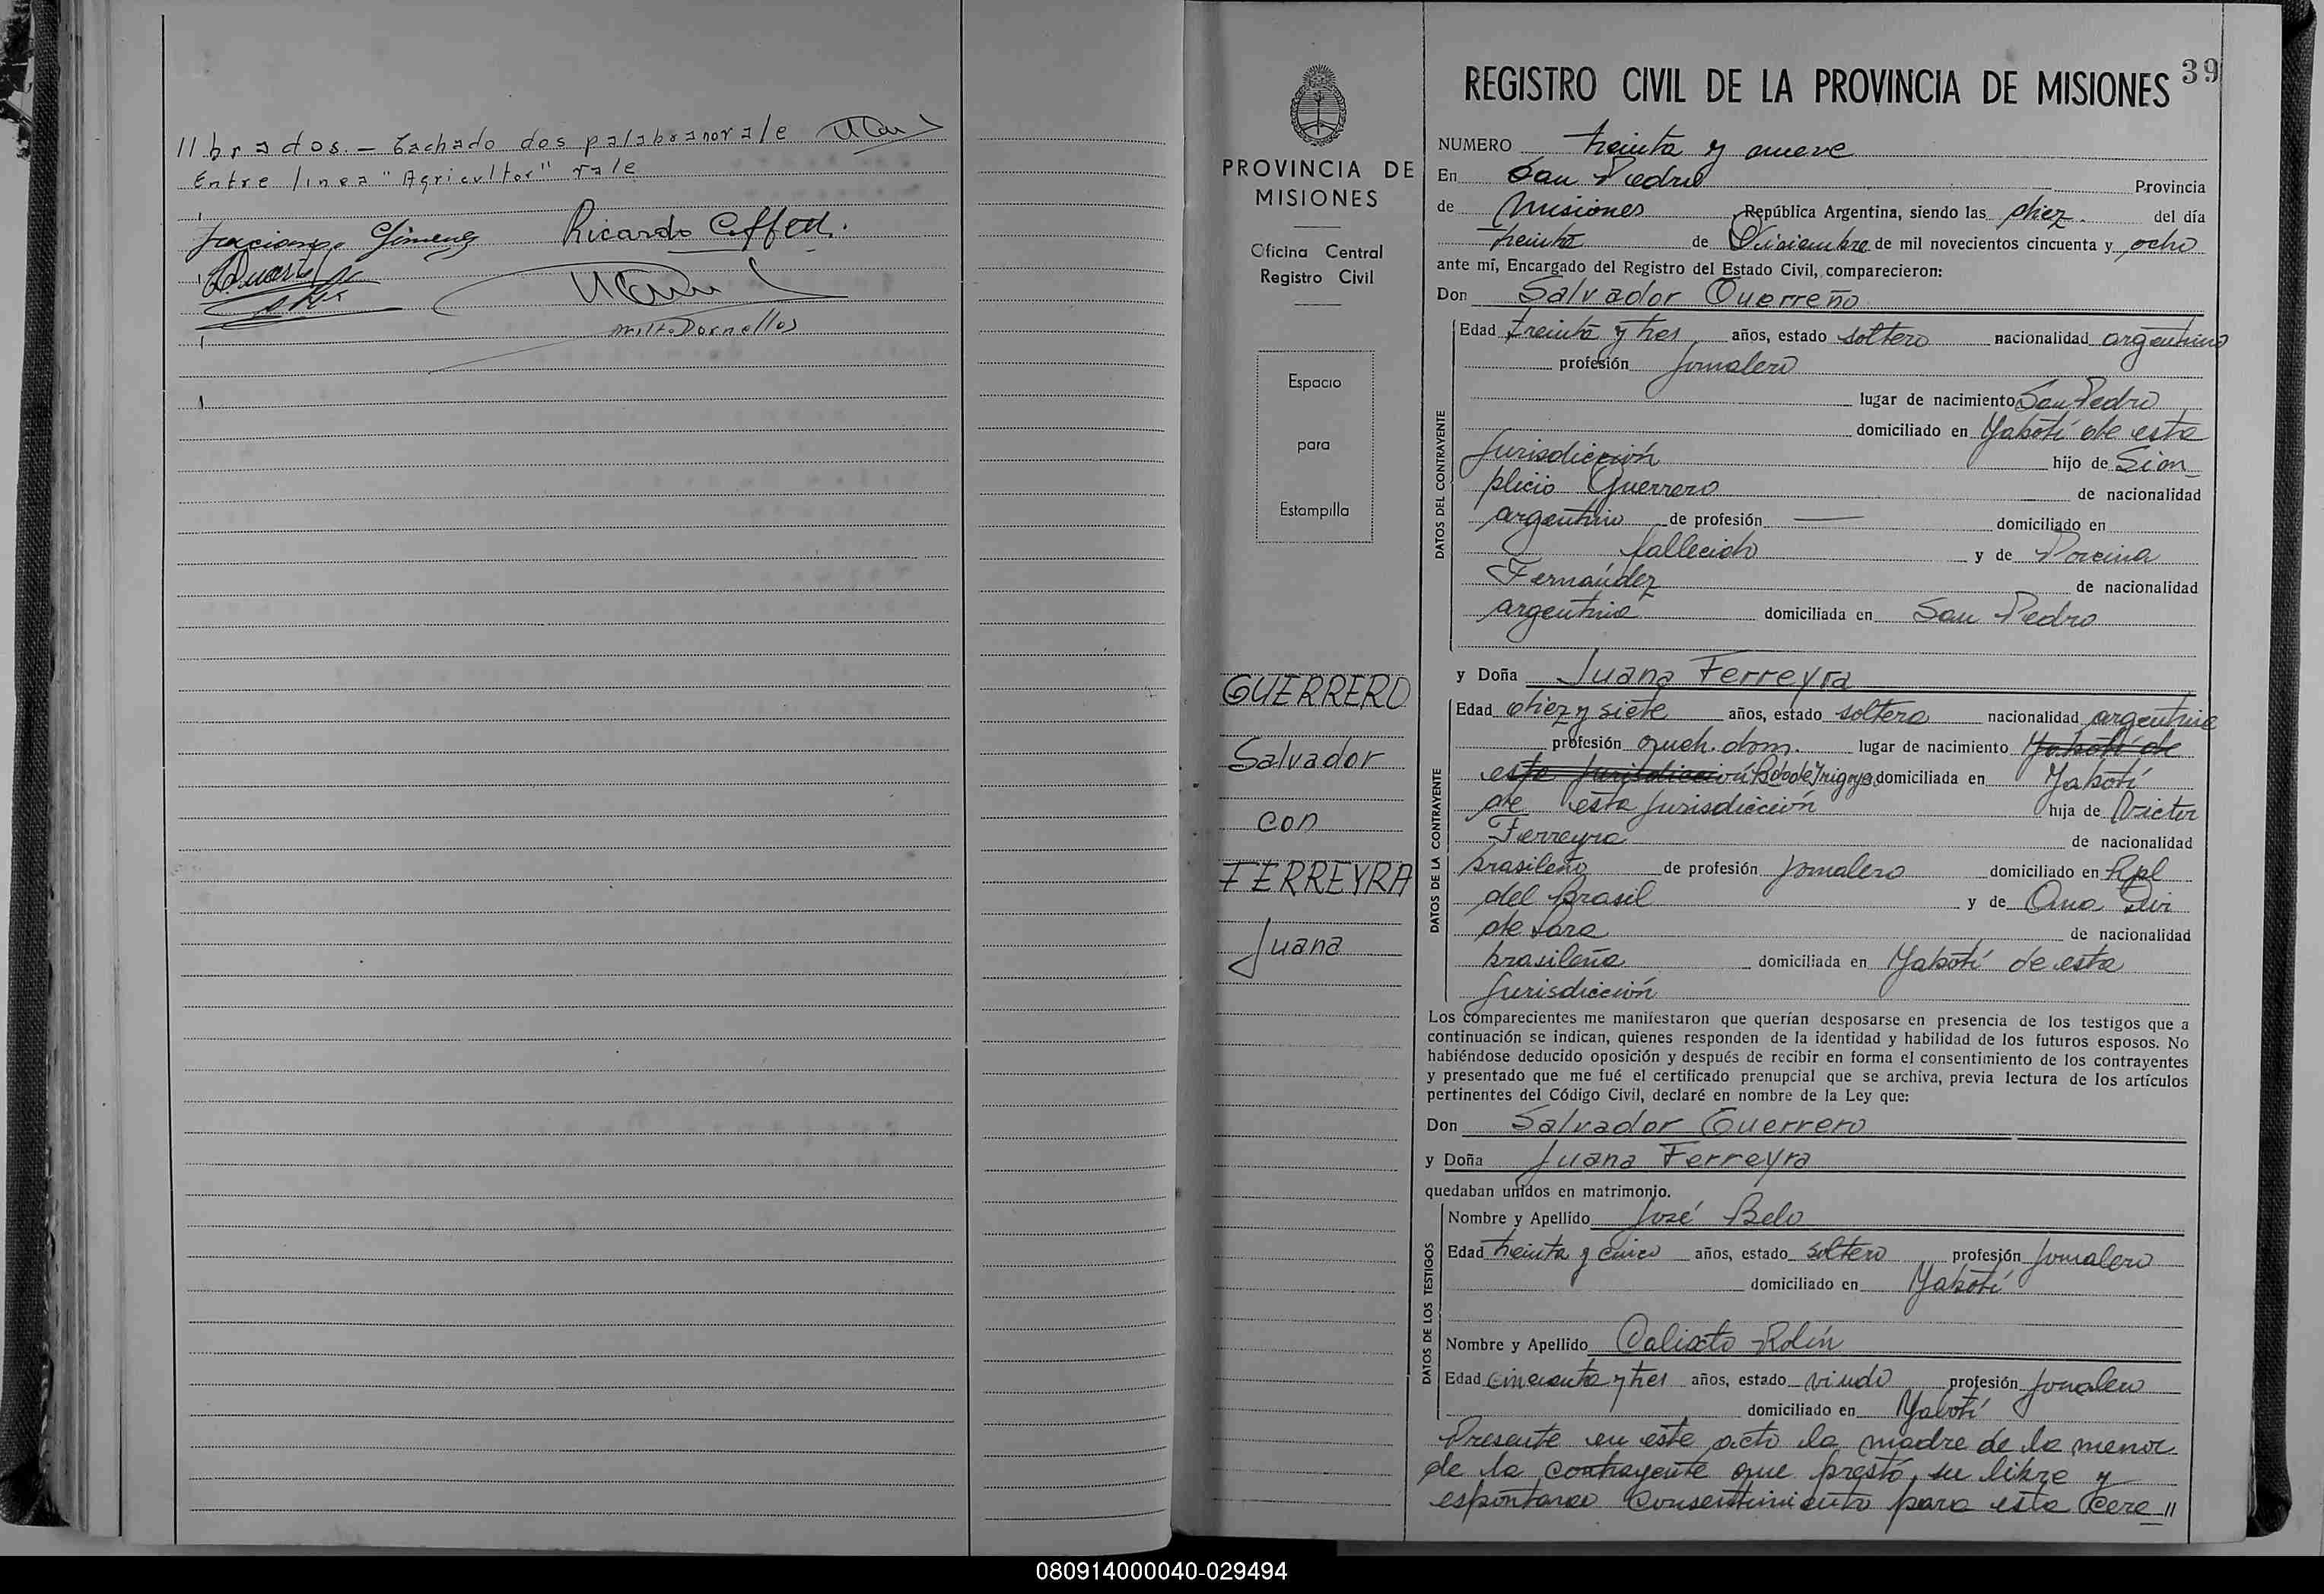 llbrados. – Tachado dos palabras no vale
Entre linea "Agricultor" vale
Gimenez Ricardo
Milto Dornellos
PROVINCIA DE
MISIONES
Oficina Central
Registro Civil
Espacio
para
Estampilla
GUERRERO
Salvador
con
FERREYRA
Juana
REGISTRO CIVIL DE LA PROVINCIA DE MISIONES 39
NUMERO treinta y nueve
En San Pedro Provincia
de Misiones República Argentina, siendo las diez del día
treinta de Diciembre de mil novecientos cincuenta y ocho
ante mí, Encargado del Registro del Estado Civil, comparecieron:
Don Salvador Guerreño
DATOS DEL CONTRAYENTE
Edad treinta y tres años, estado soltero nacionalidad argentino
profesión Jornalero
lugar de nacimiento San Pedro
domiciliado en Yabotí de esta
Jurisdicción hijo de Sim
plicio Guerrero de nacionalidad
argentino de profesión — domiciliado en
fallecido y de Porcina
Fernández de nacionalidad
argentina domiciliada en San Pedro
y Doña Juana Ferreyra
DATOS DE LA CONTRAYENTE
Edad diez y siete años, estado soltera nacionalidad argentina
profesión queh. dom. lugar de nacimiento Yabotí de
esta Jurisdicción Bdo de Irigoyen domiciliada en Yabotí
de esta Jurisdicción hija de Victor
Ferreyra de nacionalidad
brasileño de profesión Jornalero domiciliado en Rpl
del Brasil y de Ana
de Lara de nacionalidad
brasileña domiciliada en Yabotí de esta
Jurisdicción
Los comparecientes me manifestaron que querían desposarse en presencia de los testigos que a
continuación se indican, quienes responden de la identidad y habilidad de los futuros esposos. No
habiéndose deducido oposición y después de recibir en forma el consentimiento de los contrayentes
y presentado que me fué el certificado prenupcial que se archiva, previa lectura de los artículos
pertinentes del Código Civil, declaré en nombre de la Ley que:
Don Salvador Guerrero
y Doña Juana Ferreyra
quedaban unidos en matrimonio.
DATOS DE LOS TESTIGOS
Nombre y Apellido José Belo
Edad treinta y cinco años, estado soltero profesión Jornalero
domiciliado en Yabotí
Nombre y Apellido Calixto Rolín
Edad cincuenta y tres años, estado viudo profesión Jornalero
domiciliado en Yabotí
Presente en este acto la madre de la menor
de la contrayente que prestó su libre y
espontaneo consentimiento para esta Cere //
080914000040-029494